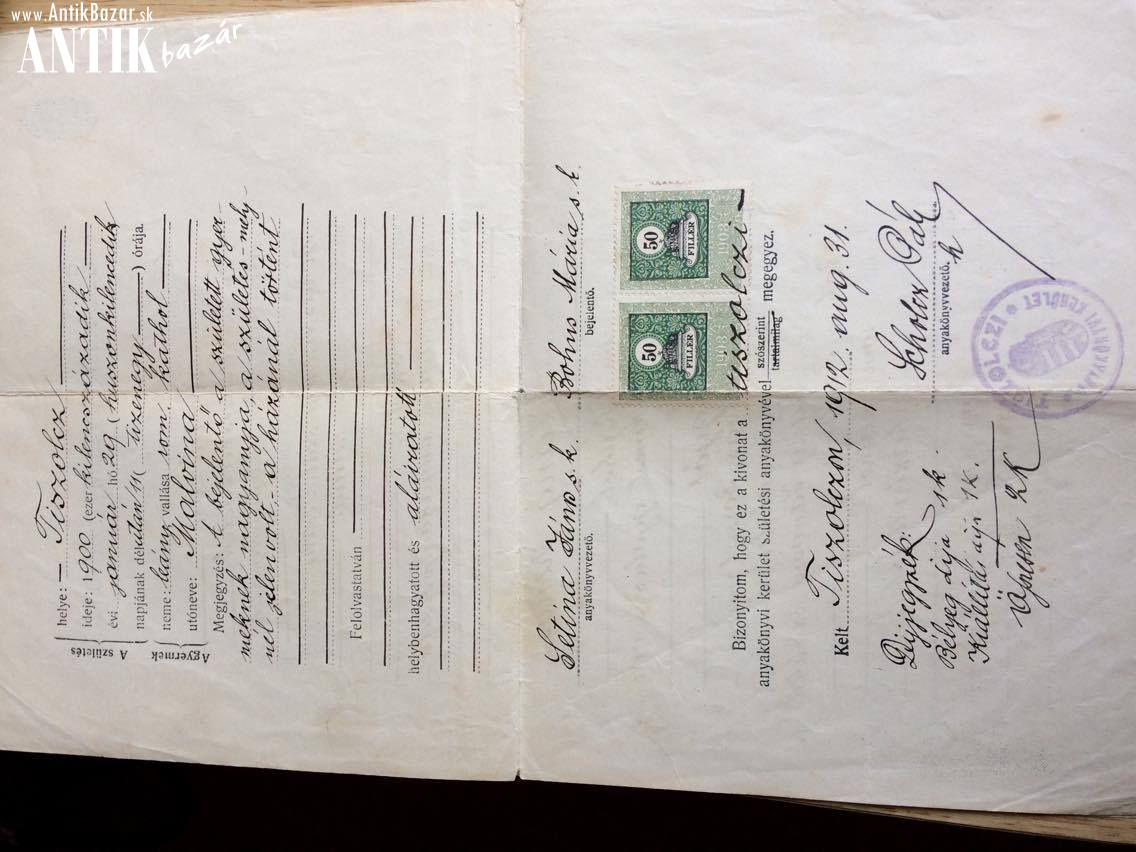 www.AntikBazar.sk
ANTIK bazár
A születés
helye: Tiszolcz
ideje: 1900 (ezer kilenczszázadik
évi január hó 29 (huszonkilenczedik
napjának délután 11 (tizenegy) órája.
A gyermek
neme: leány, vallása rom. kathol
utóneve: Malvina
Megjegyzés: A bejelentő a született gyer-
meknek nagyanyja, a születés-mely-
nél jelen volt-a házánál történt.
Felolvastatván
helybenhagyatott és aláíratott
Setina János s.k. Bohus Mária s.k.
anyakönyvvezető. bejelentő.
50
FILLÉR
1903
50
FILLÉR
1903
Bizonyitom, hogy ez a kivonat a tiszolczi
anyakönyvi kerület születési anyakönyvével szószerint
tartalmilag megegyez.
Kelt Tiszolczon, 1912 aug. 31.
Díjjegyzék:
Bélyeg díja 1k
Kiállít. díja 1K.
Összesen 2K
Scholcz Pál
anyakönyvvezető. h
TISZOLCZI ANYAKÖNYVI KERÜLET